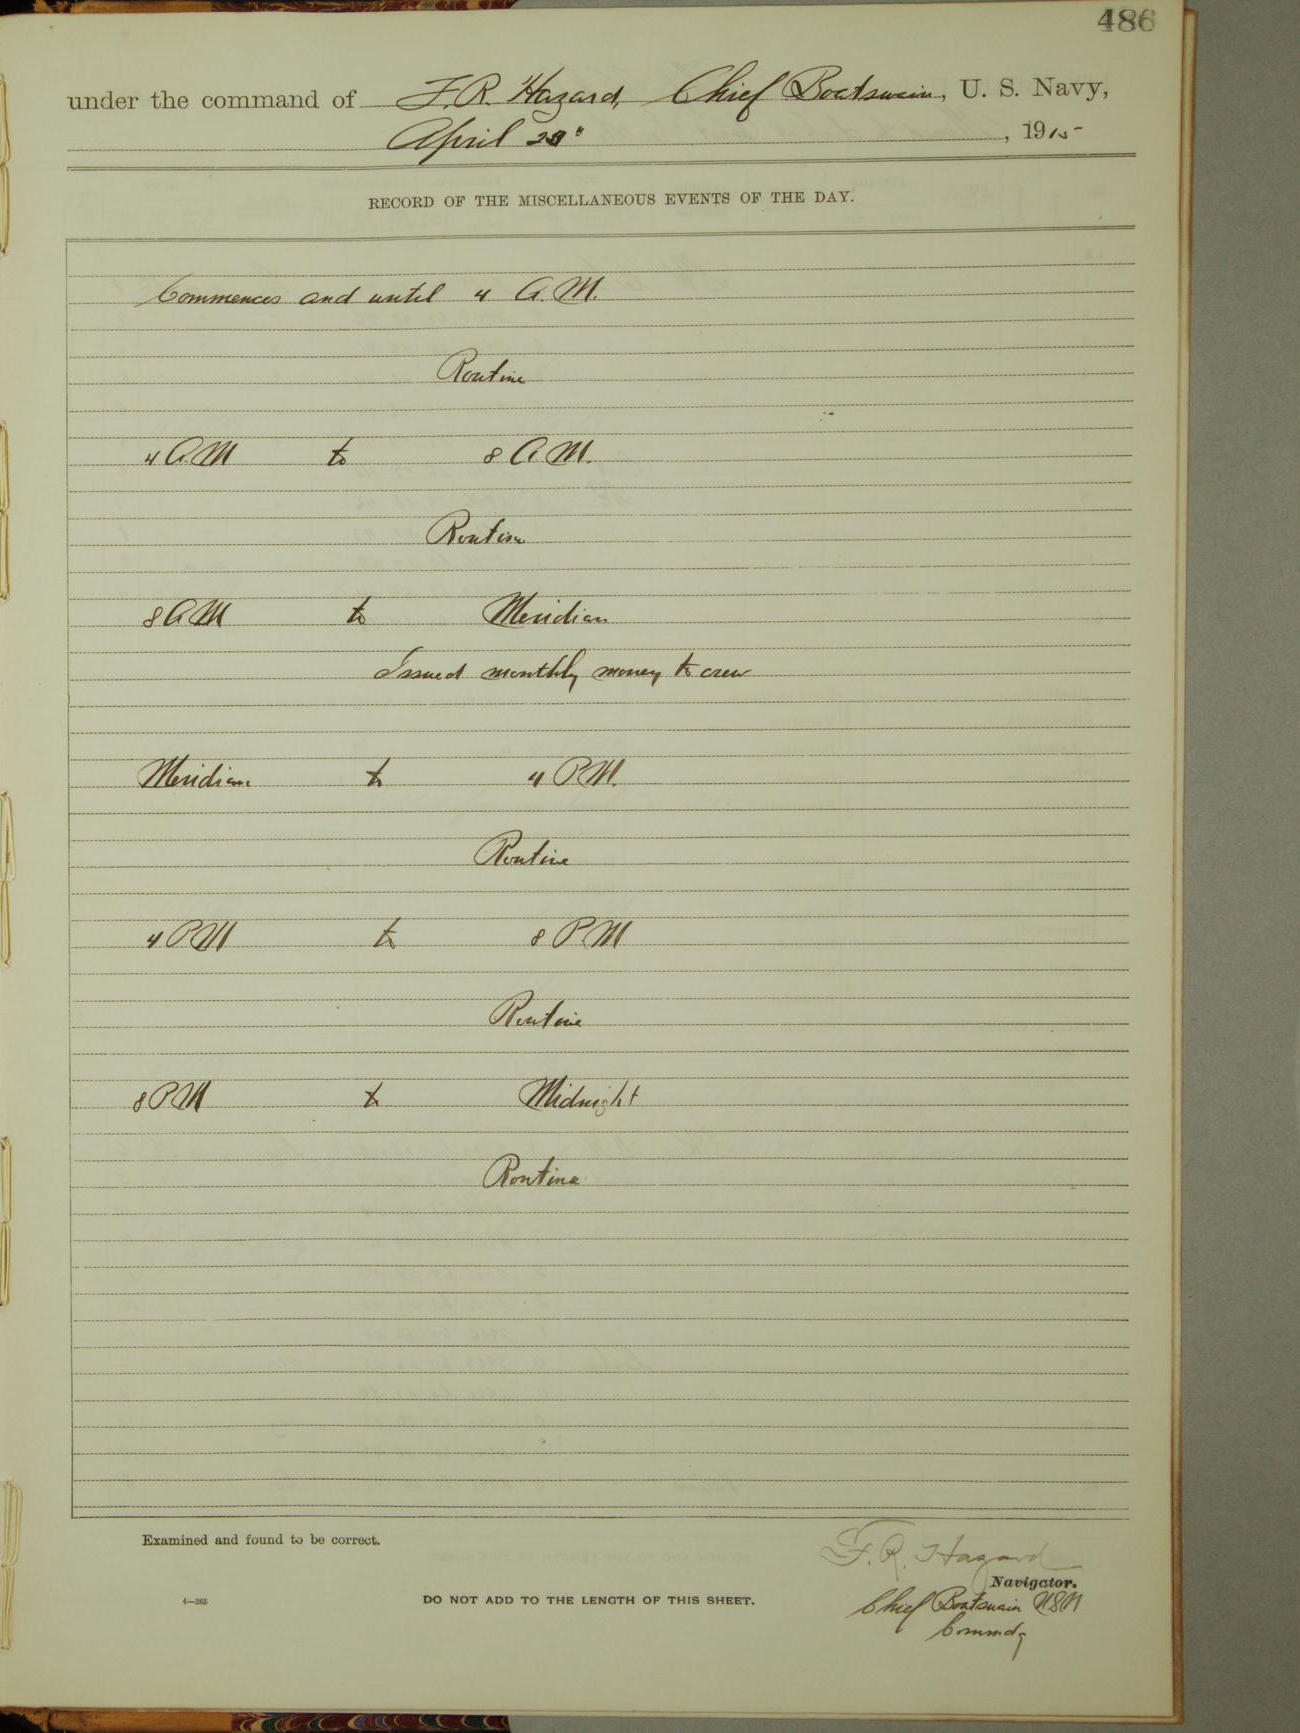 486
under the command of F. R. Hazard, Chief Boatswain, U. S. Navy,
April , 1915
RECORD OF THE MISCELLANEOUS EVENTS OF THE DAY.
Commences and until 4 A.M.
Routine
4 A.M to 8 A.M.
Routine
8 A M to Meridian
Issued monthly money to crew
Meridian to 4 P.M.
Routine
4 P M to 8 P M
Routine
8 P M to Midnight
Routine
Examined and found to be correct.
F. R. Hazard
Navigator.
4—265
DO NOT ADD TO THE LENGTH OF THIS SHEET.
Chief Boatswain USN
Commdg